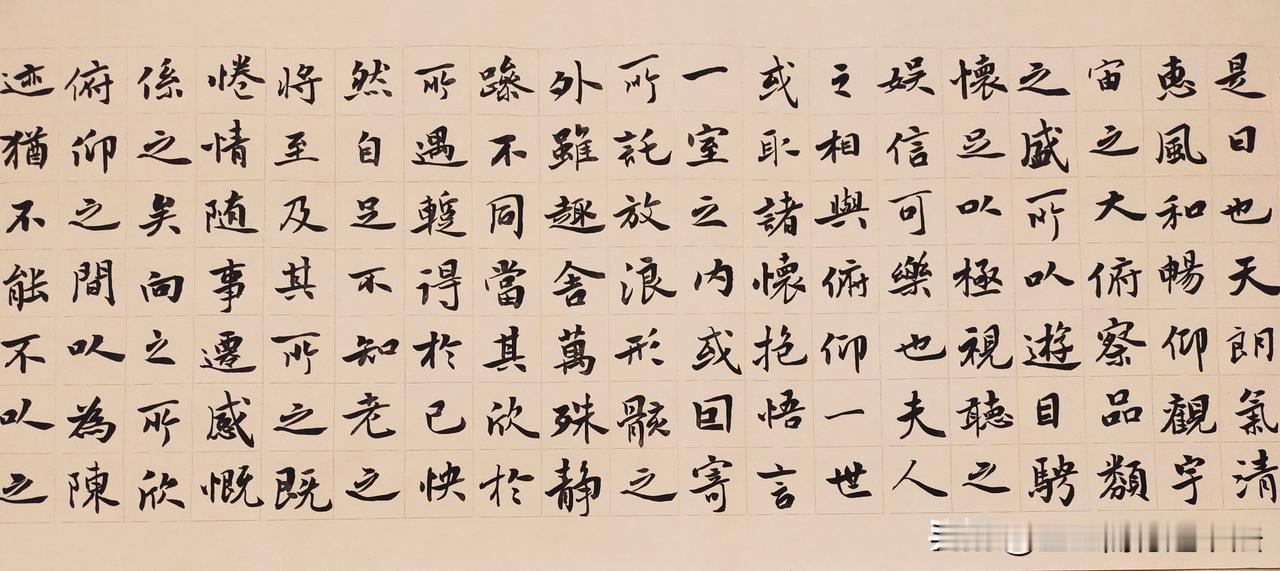 是日也天朗氣清
惠風和暢仰觀宇
宙之大俯察品類
之盛所以遊目騁
懷足以極視聽之
娱信可樂也夫人
之相與俯仰一世
或取諸懷抱悟言
一室之内或回寄
所託放浪形骸之
外雖趣舍萬殊静
躁不同當其欣於
所遇蹔得於己怏
然自足不知老之
将至及其所之既
惓情随事遷感慨
係之矣向之所欣
俯仰之間以為陳
迹猶不能不以之